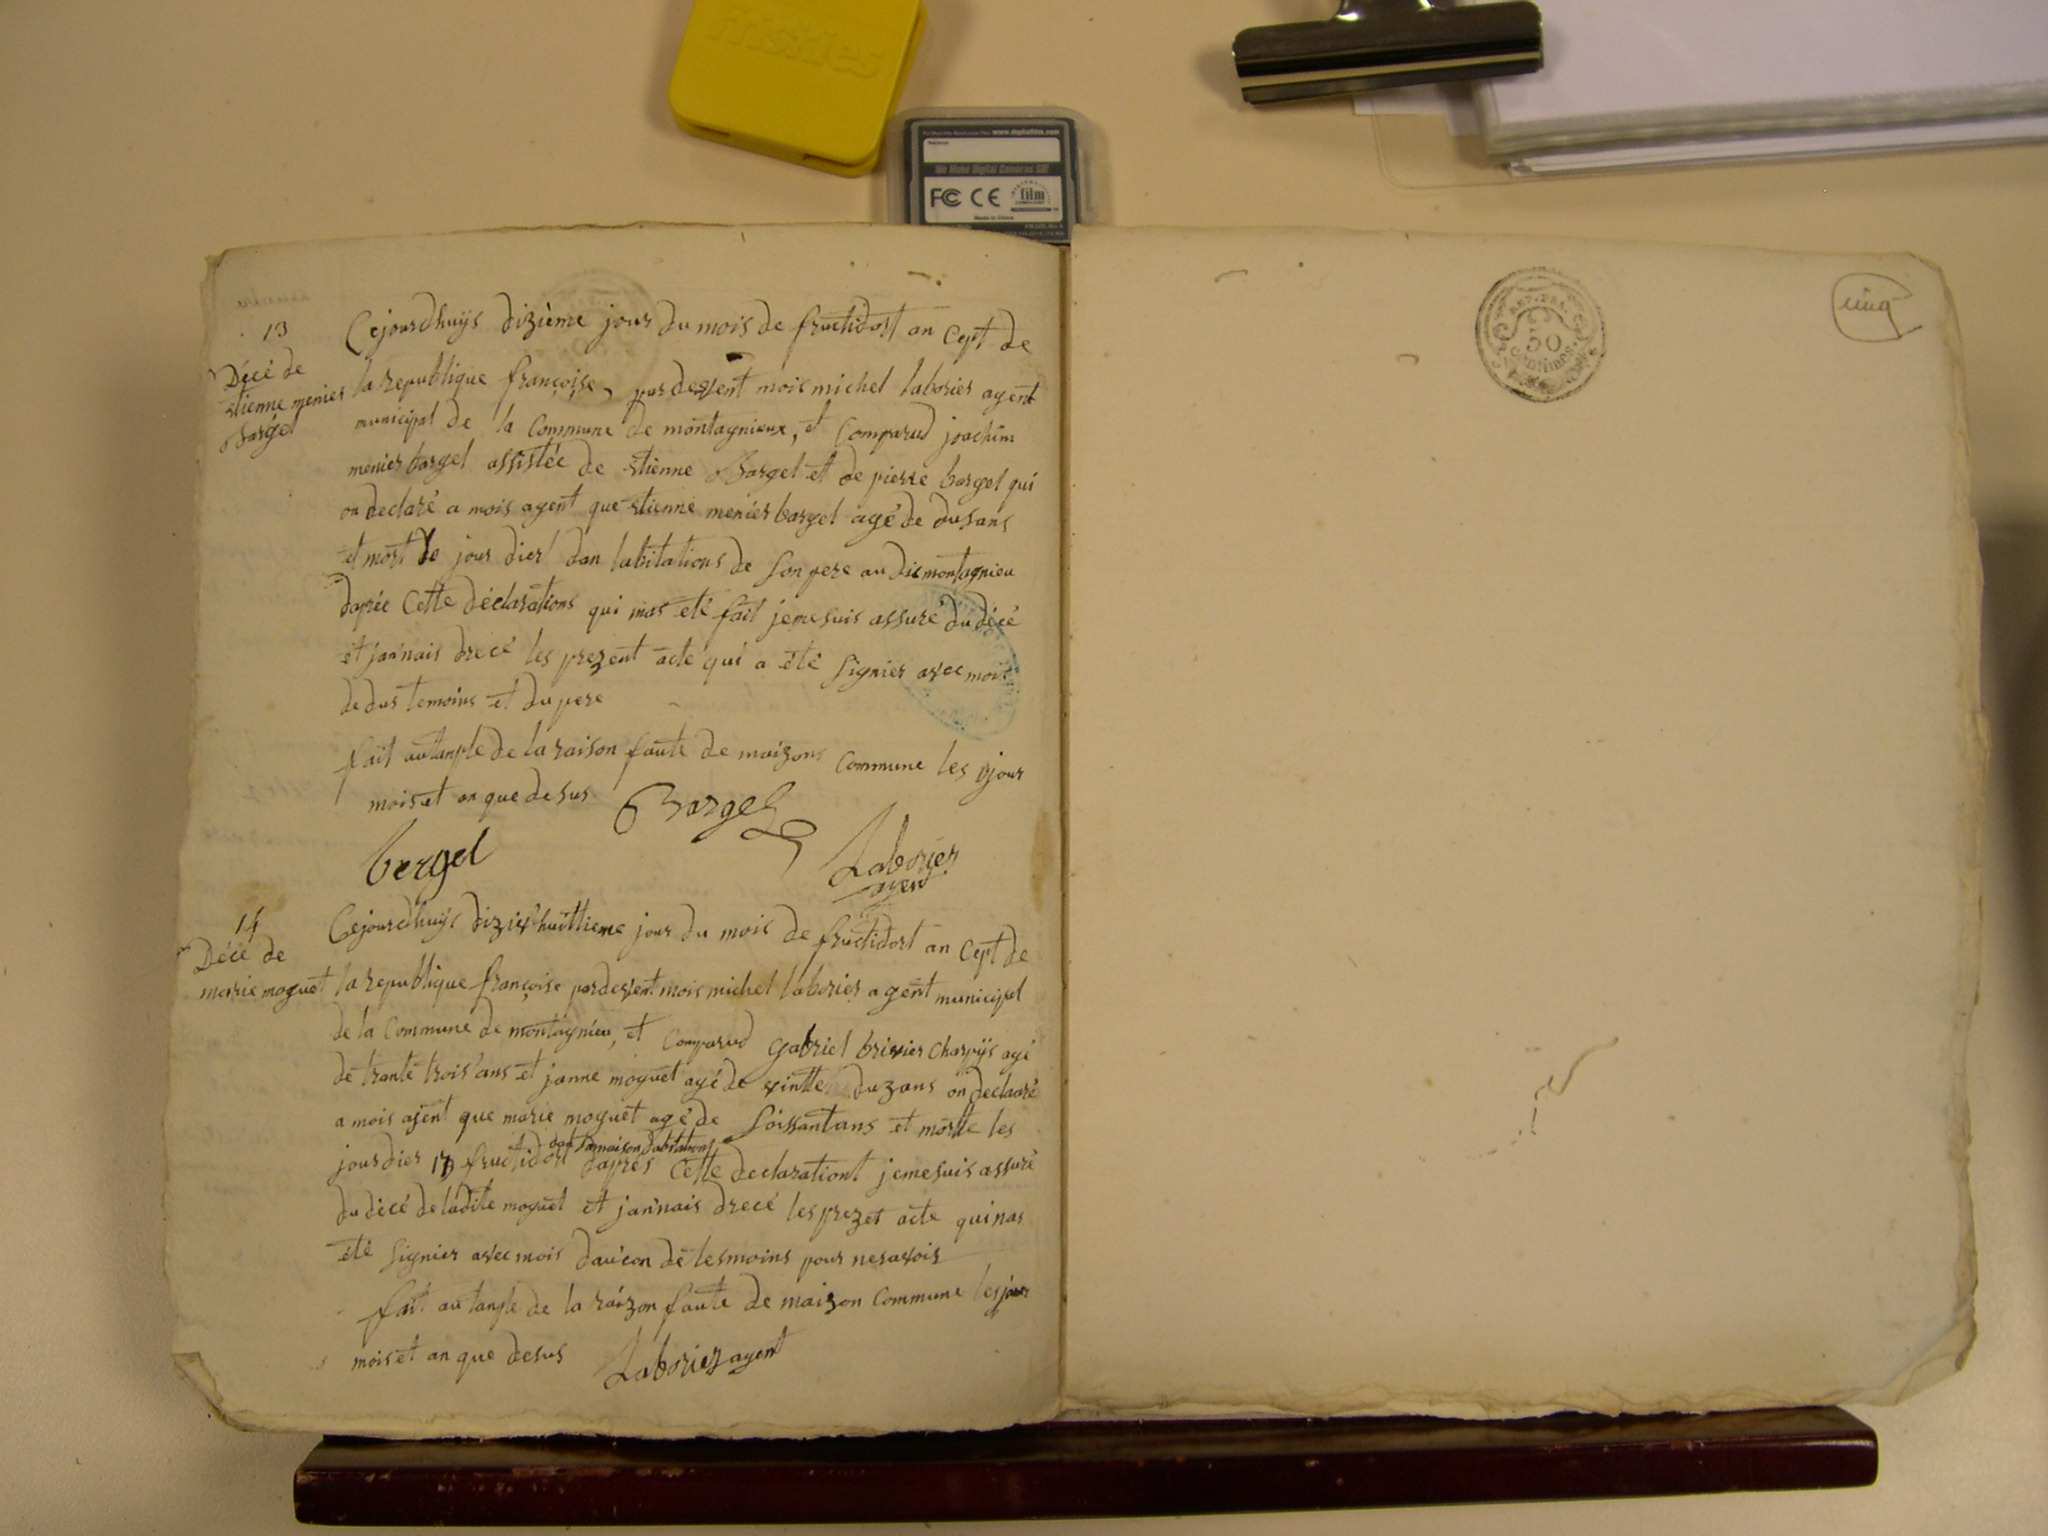 maries
www.dephofilm.com
We Make Digital Cameras Sit!
FC CE film
Made in China
13
Décé de
etienne menier
Bargel
Cejourdhuys dizième jour du mois de fructidort an Cept de
la republique françoise, pardevent mois michel laborier agent
municipal de la Commune de montagnieux, et Comparud joachim
menier bargel assistée de etienne Bargel et de pierre bargel qui
on declaré a mois agent que etienne menier bargel agé de dusans
et mort le jour dierl dan labitations de son pere au dit montagnieu
daprée Cette déclarations qui mas eté fait jemesuis assuré du décé
et jannais drecé les prezent acte qui a été Signier avec mois
de dus temoins et du pere
fait autanple de la raison faute de maizons Commune les jour
mois et an que desus
Bargel
bergel
Laborier
agent
14
Décé de
marie moguet
Cejourdhuys dizix huittieme jour du mois de fructidort an Cept de
la republique françoise pardevent mois michel laborier agent municipal
de la Commune de montagnieu, et Comparud gabriel brixier charpys agé
de trante trois ans et janne moguet agé de vintte duzans on declaré
a mois ajent que marie moguet agé de Soissantans et mortte les
dan samaison dabitations
jour dier 17 fructidort daprés Cette declarationt jemesuis assuré
du décé de ladite moguet et jannais drecé les prezet acte qui nas
été Signier avec mois daucon de tesmoins pour nesavoir
fait autanple de la raizon faute de maizon Commune les jour
mois et an que desus
Laborier agent
REP. FRA.
50
Centimes
cinq